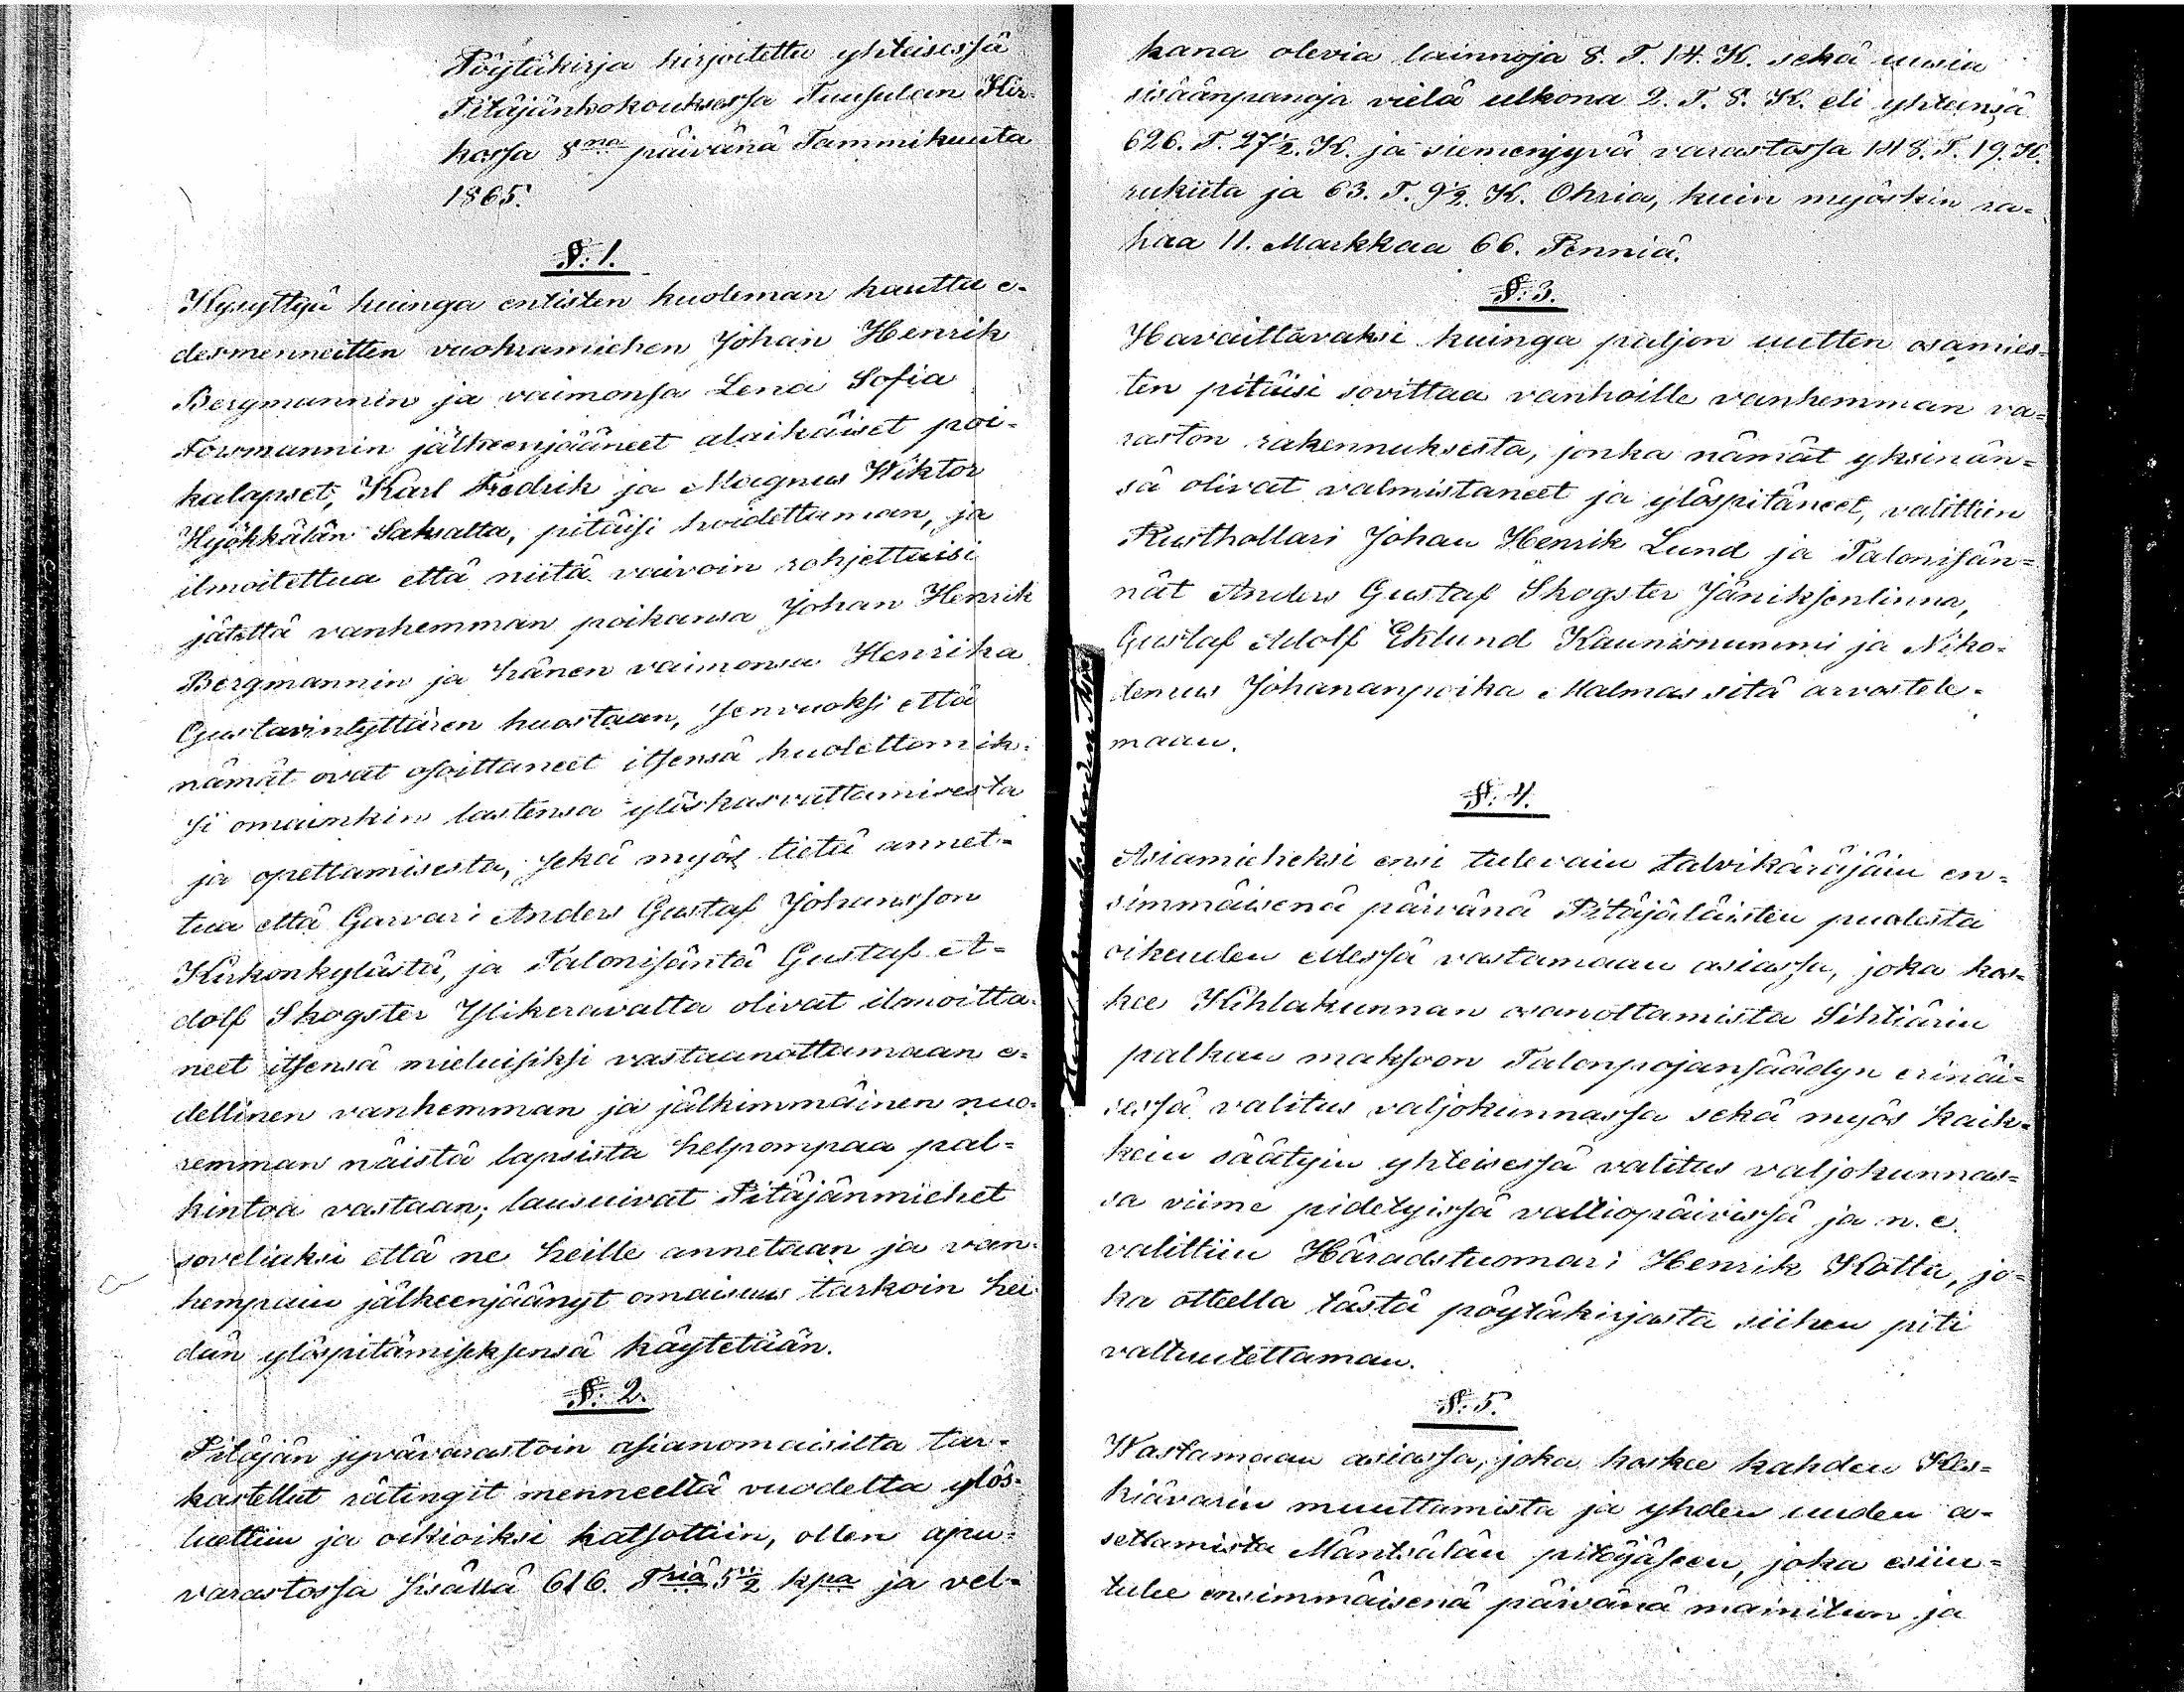 Pöytäkirja kirjoitettu yhteisessä
Pitäjänkokouksessa Tuusulan Kir-
kossa 8na päivänä Tammikuuta
1865.
§. 1.
Kysyttyä kuinga entisten kuoleman kautta e-
desmenneitten vuokramiehen Johan Henrik
Bergmannin ja vaimonsa Lena Sofia
Forsmannin jälkeenjääneet alaikäiset poi-
kalapset, Karl Fredrik ja Magnus Wiktor
Hyökkälän Saksalta, pitäisi hoidettaman, ja
ilmoitettua että niitä vaivoin rohjettaisi
jätettä vanhemman poikansa Johan Henrik
Bergmannin ja hänen vaimonsa Henrika
Gustavintyttären huostaan, senvuoksi että
nämät ovat osoittaneet itsensä huolettomik-
si omainkin lastensa ylöskasvattamisesta
ja opettamisesta, sekä myös tietä annet-
tua että Garvari Anders Gustaf Johansson
Kirkonkylästä, ja Talonisäntä Gustaf A-
dolf Skogster Ylikeravalta olivat ilmoitta-
neet itsensä mieluisiksi vastaanottamaan e-
dellinen vanhemman ja jälkimmäinen nuo-
remman näistä lapsista helpompaa pal-
kintoa vastaan; lausuivat Pitäjänmiehet
soveliaksi että ne heille annetaan ja van-
hempain jälkeenjäänyt omaisuus tarkoin hei-
dän ylöspitämiseksensä käytetään.
§. 2.
Pitäjän jyvävarastoin asianomaisilta tar-
kastellut rätingit menneeltä vuodelta ylös-
luettiin ja oikioiksi katsottiin, ollen apu-
varastossa sisällä 616. Triä 5 1/2 kpa ja vel-
kana olevia lainnoja 8. T. 14. K. sekä uusia
sisäänpanoja vielä ulkona 2. T. 8. K. eli yhteensä
626. T. 27 1/2. K. ja siemenjyvä varastossa 148. T. 19. K.
rukiita ja 63. T. 9 1/2. K. Ohria, kuin myöskin ra-
haa 11. Markkaa 66. Penniä.
§. 3.
Havaittavaksi kuinga paljon uutten osamies-
ten pitäisi sovittaa vanhoille vanhemman va-
raston rakennuksesta, jonka nämät yksinän-
sä olivat valmistaneet ja ylöspitäneet, valittiin
Rusthollari Johan Henrik Lund ja Talonisän-
nät Anders Gustaf Skogster Jäniksenlinna,
Gustaf Adolf Eklund Kaunisnummi ja Niko-
demus Johananpoika Malmas sitä arvostele-
maan.
§. 4.
Asiamieheksi ensi tulevain talvikäräjäin en-
simmäisenä päivänä Pitäjäläisten puolesta
oikeuden edessä vastamaan asiassa, joka kos-
kee Kihlakunnan osanottamista Sihtiärin
palkan maksoon Talonpojansäädyn erinäi-
sessä valitus valjokunnassa sekä myös kaik-
kein säätyin yhteisessä valitus valjokunnas-
sa viime pidetyissä valtiopäivissä ja n. e.
valittiin Häradstuomari Henrik Kotta, jo-
ka otteella tästä pöytäkirjasta siihen piti
valtuutettaman.
§. 5.
Wastamaan asiassa, joka koskee kahden Kes-
kiävarin muuttamista ja yhden uuden a-
settamista Mäntsälän pitäjäseen, joka esiin-
tulee ensimmäisenä päivänä mainitun ja